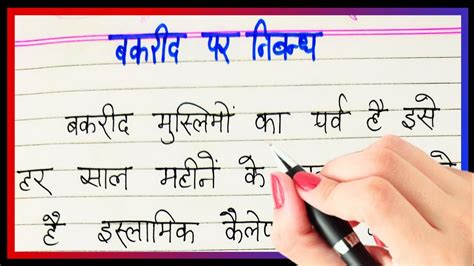 बकरीद पर निबन्ध
बकरीद मुस्लिमों का पर्व है इसे
हर साल महीनें के
है इस्लामिक